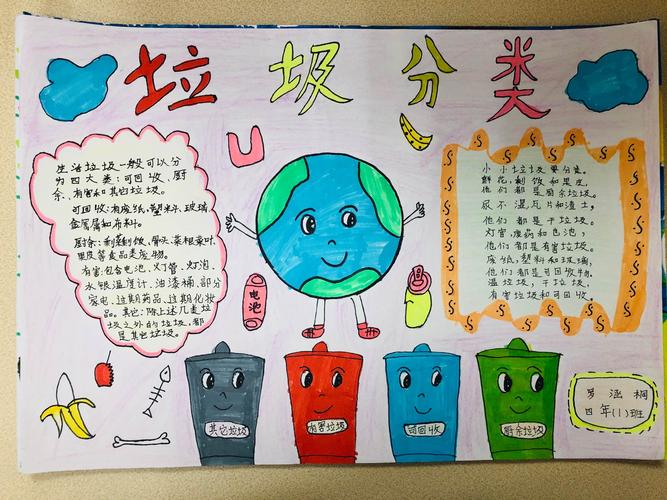 垃圾分类
生活垃圾一般可以分
为四大类：可回收、厨
余、有害和其它垃圾。
可回收：有废纸、塑料、玻璃、
金属属和布料。
厨余：剩菜剩饭、骨头、菜根菜叶、
果皮等食品类废物。
有害：包含电池、灯管、灯泡、
水银温度计、油漆桶、部分
家电、过期药品、过期化妆
品。其它：除上述几类垃
圾之外的垃圾，都
是其它垃圾。
小小垃圾要分类。
鲜花，剩饭和果皮，
他们都是厨余垃圾。
尿不湿瓦片和渣土，
他们都是干垃圾，
灯管，废药和电池，
他们都是有害垃圾。
废纸，塑料和玻璃，
他们都是可回收物。
湿垃圾，干垃圾，
有害垃圾和可回收。
电池
其它垃圾
有害垃圾
可回收
厨余垃圾
罗涵桐
四年(1)班